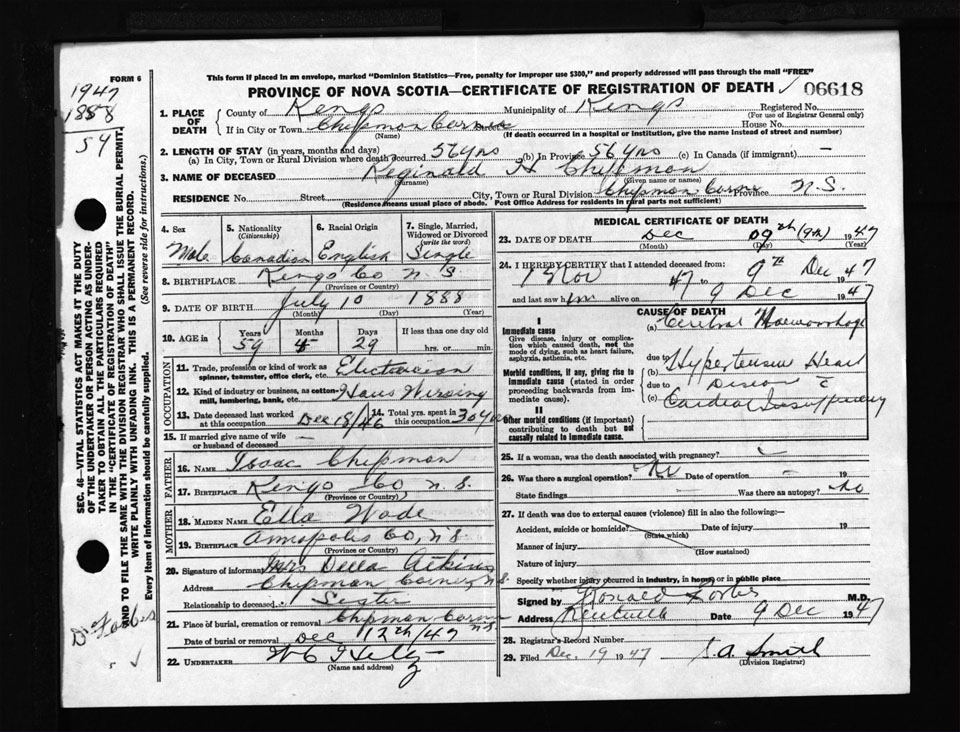 FORM 6
1947
1888
54
This form if placed in an envelope, marked "Dominion Statistics—Free, penalty for improper use $300," and properly addressed will pass through the mail "FREE"
PROVINCE OF NOVA SCOTIA—CERTIFICATE OF REGISTRATION OF DEATH 06618
1. PLACE OF DEATH County of Kings Municipality of Kings Registered No.
(For use of Registrar General only)
If in City or Town Chipman Corner Street House No.
(Name) (If death occurred in a hospital or institution, give the name instead of street and number)
2. LENGTH OF STAY (in years, months and days)
(a) In City, Town or Rural Division where death occurred 56 yrs (b) In Province 56 yrs (c) In Canada (if immigrant) —
3. NAME OF DECEASED Reginald H Chipman
(Surname) (Given name or names)
RESIDENCE No. Street City, Town or Rural Division Chipman Corner Province N.S.
(Residence means usual place of abode. Post Office Address for residents in rural parts not sufficient)
4. Sex
Male
5. Nationality
(Citizenship)
Canadian
6. Racial Origin
English
7. Single, Married, Widowed or Divorced
(write the word)
Single
8. BIRTHPLACE Kings Co N.S.
(Province or Country)
9. DATE OF BIRTH July 10 1888
(Month) (Day) (Year)
10. AGE in Years 59 Months Days 29 If less than one day old
hrs. or min.
OCCUPATION
11. Trade, profession or kind of work as spinner, teamster, office clerk, etc. Electrician
12. Kind of industry or business, as cotton-mill, lumbering, bank, etc. Haus Wirsing
13. Date deceased last worked at this occupation Dec 18/46
14. Total yrs. spent in this occupation 30 yrs
15. If married give name of wife or husband of deceased —
FATHER
16. NAME Isaac Chipman
17. BIRTHPLACE Kings Co N.S.
(Province or Country)
MOTHER
18. MAIDEN NAME Ella Wade
19. BIRTHPLACE Annapolis Co, N.S.
(Province or Country)
20. Signature of informant Mrs Della Atkins
Address Chipman Corner, N.S.
Relationship to deceased Sister
21. Place of burial, cremation or removal Chipman Corner N.S.
Date of burial or removal Dec 12th/47
22. UNDERTAKER
(Name and address)
MEDICAL CERTIFICATE OF DEATH
23. DATE OF DEATH Dec 09th (9th) 1947
(Month) (Day) (Year)
24. I HEREBY CERTIFY that I attended deceased from:
1 Nov 47 to 9th Dec 47
and last saw him alive on 9 Dec 1947
CAUSE OF DEATH
I
Immediate cause
Give disease, injury or complication which caused death, not the mode of dying, such as heart failure, asphyxia, asthenia, etc.
(a) Cerebral Haemorrhage
due to
Morbid conditions, if any, giving rise to immediate cause (stated in order proceeding backwards from immediate cause).
(b) Hypertensive Heart
due to Disease c̄
(c) Cardiac Insufficiency
II
Other morbid conditions (if important) contributing to death but not causally related to immediate cause.
25. If a woman, was the death associated with pregnancy? —
26. Was there a surgical operation? No Date of operation — 19
State findings Was there an autopsy? No
27. If death was due to external causes (violence) fill in also the following:—
Accident, suicide or homicide? Date of injury 19
(State which)
Manner of injury
(How sustained)
Nature of injury
Specify whether injury occurred in industry, in home, or in public place
Signed by Ronald Forbes M.D.
Address Kentville Date 9 Dec 1947
28. Registrar's Record Number
29. Filed Dec. 19 1947 S.A. Smith
(Division Registrar)
SEC. 46—VITAL STATISTICS ACT MAKES IT THE DUTY
OF THE UNDERTAKER OR PERSON ACTING AS UNDER-
TAKER TO OBTAIN ALL THE PARTICULARS REQUIRED
IN THE "CERTIFICATE OF REGISTRATION OF DEATH"
AND TO FILE THE SAME WITH THE DIVISION REGISTRAR WHO SHALL ISSUE THE BURIAL PERMIT.
WRITE PLAINLY WITH UNFADING INK. THIS IS A PERMANENT RECORD.
Every item of information should be carefully supplied. (See reverse side for instructions.)
Dr Forbes